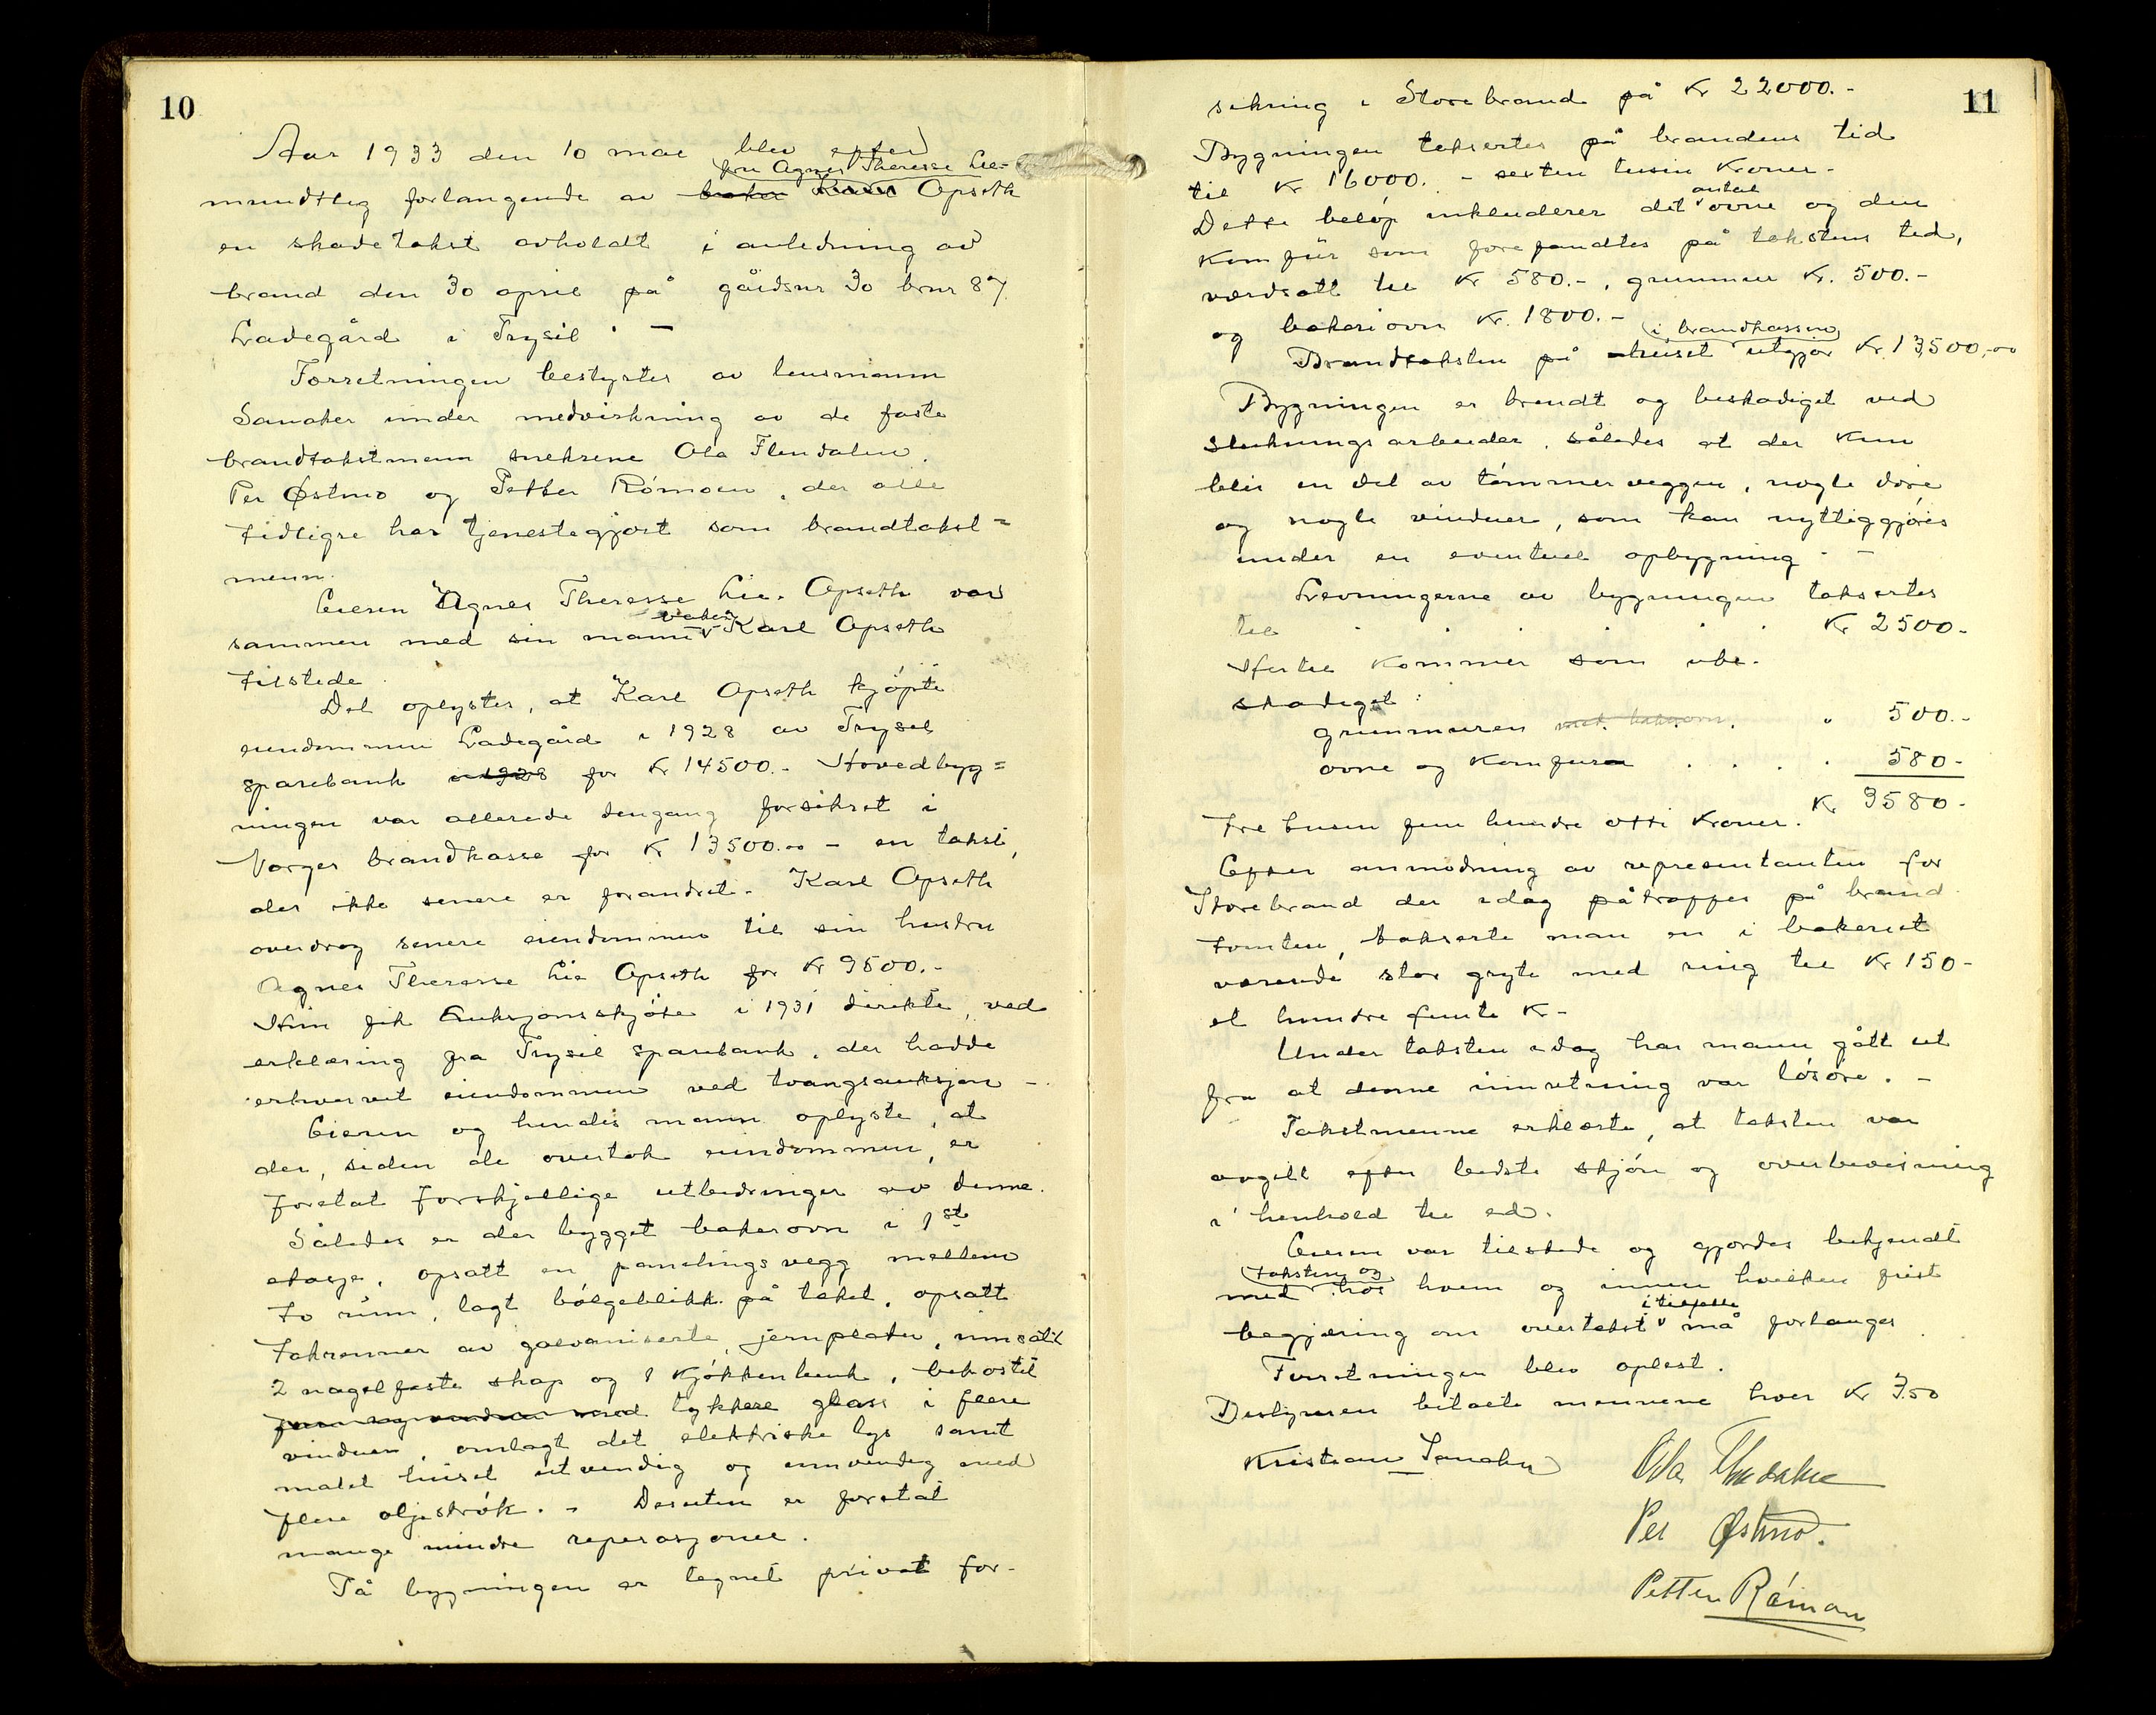 10
Aar 1933 den 10 mai blev efter
fru Agnes Theresse Lie-
mundtlig forlangende av baker Karl Opseth
en skadetakst avholdt i anledning av
brand den 30 april på gårdsnr 30 brnr 87
Ladegård i Trysil. -
Forretningen bestyrtes av lensmann
Sanaker under medvirkning av de faste
brandtakstmenn snekrene Ola Flendalen,
Per Østmo og Petter Rómoen, der alle
tidligre har tjenestegjort som brandtakst=
menn.
Eieren Agnes Theresse Lie-Opseth var
baker
sammen med sin mann Karl Opseth
tilstede.
Det oplystes, at Karl Opseth kjópte
eiendommen Ladegård i 1928 av Trysil
sparebank i 1928 for Kr 14500.- Hovedbyg=
ningen var allerede dengang forsikret i
Norges brandkasse for Kr 13500.00 - en takst,
der ikke senere er forandret. Karl Opseth
overdrog senere eiendommen til sin hustru
Agnes Theresse Lie Opseth for Kr 9500.-
Hun fik Auksjonsskjóte i 1931 direkte, ved
erklæring fra Trysil sparebank, der hadde
erhvervet eiendommen ved tvangsauksjon -
Eieren og hendes mann oplyste, at
der, siden de overtok eiendommen, er
foretat forskjellige utbedringer av denne.
Således er der bygget bakerovn i 1ste
etasje, opsatt en panelingsvegg mellem
to rum, lagt bólgeblikk på taket, opsatt
takrenner av galvaniserte jernplater, innsatt
2 nagelfaste skap og 1 kjókkenbenk, bekostet
tykkere glass i flere
vinduer, omlagt det elektriske lys samt
malet huset utvendig og innvendig med
flere oljestrók. - Desuten er foretat
mange mindre reperasjoner.
På bygningen er tegnet privat for-
11
sikring i Storebrand på Kr 22000.-
Bygningen taksertes på brandens tid
til Kr 16000. - seksten tusin Kroner -
antal
Dette beløp inkluderer det ovne og den
Komfür som forefandtes på takstens tid,
værdsatt til Kr 580.-, grunmur Kr. 500.-
og bakeriovn Kr. 1800.-
i brandkassen
Brandtaksten på huset utgjør Kr 13,500,00
Bygningen er brendt og beskadiget ved
slukningsarbeider, således at der kun
blir en del av tómmerveggen, nogle dóre
og nogle vinduer, som kan nyttiggjóres
under en eventuel opbygning. -
Levningerne av bygningen taksertes
til . . . . . . Kr 2500.-
Hertil kommer som ube-
skadiget:
grunmuren med bakerovn . " 500.-
ovne og Komfur . . . . 580-
Kr 3580-
tre tusen fem hundre otti Kroner.
Efter anmodning av representanten for
Storebrand der idag påtraffes på brand
tomten, takserte man en i bakeriet
værende stor gryte med ring til Kr 150-
et hundre femti K-
Under taksten idag har mann gått ut
fra at denne innretning var lósóre. -
Takstmenne erklærte, at taksten var
avgitt efter bedste skjón og overbevisning
i henhold til ed.
Eieren var tilstede og gjordes bekjendt
taksten og
med hos hvem og innen hvilken frist
i tilfelle
begjæring om overtakst må forlanges
Forretningen blev oplest.
Bestyreren betalte mennene hver Kr 7.50
Kristian Sanaker
Ola Flendalen
Per Østmo.
Petter Rómoen